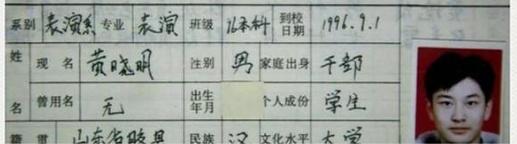 系别 表演系 专业 表演 班级 96本科 到校日期 1996.9.1
姓名 现名 黄晓明 性别 男 家庭出身 干部
曾用名 无 出生年月 个人成份 学生
籍贯 山东省胶县 民族 汉 文化水平 大学